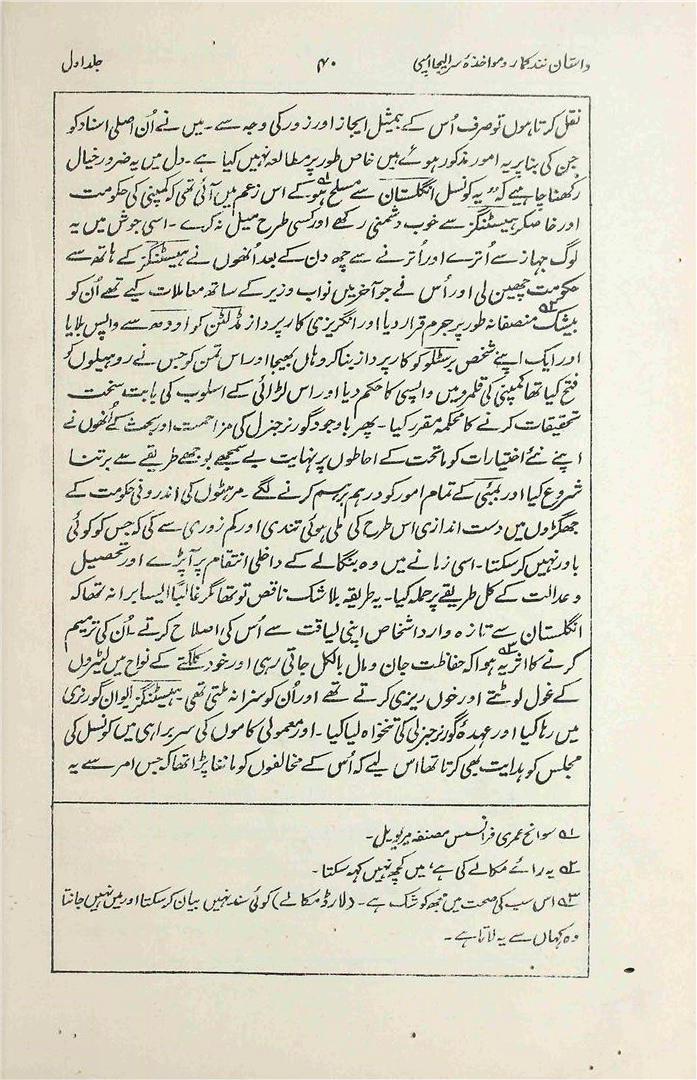 داستان نند کمار و مواخذۂ سر الیجا امپی ۴۰ جلد اول
نقل کرتا ہوں تو صرف اُس کے بمیثل ایجاز اور زور کی وجہ سے ۔ میں نے اُن اصلی اسناد کو
جن کی بنا پر یہ امور مذکور ہوئے ہیں خاص طور پر مطالعہ نہیں کیا ہے ۔ دل میں یہ ضرور خیال
رکھنا چاہیے کہ "یہ کونسل انگلستان سے مسلح ہو کے اس زعم میں آئی تھی کہ کمپنی کی حکومت
اور خاصکر ہیسٹنگز سے خوب دشمنی رکھے اور کسی طرح میل نہ کرے ۔ اسی جوش میں یہ
لوگ جہاز سے اُترے اور اُترنے سے چھ دن کے بعد اُنھوں نے ہیسٹنگز کے ہاتھ سے
حکومت چھین لی اور اُس نے جو آخر میں نواب وزیر کے ساتھ معاملات کیے تھے اُن کو
بیشک ۲؎ منصفانہ طور پر جرم قرار دیا اور انگریزی کارپرداز مڈلٹن کو اودھ سے واپس بلایا
اور ایک اپنے شخص برسٹلو کو کارپرداز بنا کر وہاں بھیجا اور اس تمن کو جس نے روہیلوں کو
فتح کیا تھا کمپنی کی قلمرو میں واپسی کا حکم دیا اور اس لڑائی کے اسلوب کی بابت سخت
تحقیقات کرنے کا محکمہ مقرر کیا ۔ پھر باوجود گورنر جنرل کی مزاحمت اور بحث کے اُنھوں نے
اپنے نئے اختیارات کو ماتحت کے احاطوں پر نہایت بے سمجھے بوجھے طریقے سے برتنا
شروع کیا اور بمبئی کے تمام امور کو درہم برہم کرنے لگے ۔ مرہٹوں کی اندرونی حکومت کے
جھگڑوں میں دست اندازی اس طرح کی ملی ہوئی تندی اور کم زوری سے کی کہ جس کو کوئی
باور نہیں کر سکتا ۔ اسی زمانے میں وہ بنگالے کے داخلی انتقام پر آ پڑے اور تحصیل
و عدالت کے کل طریقے پر حملہ کیا ۔ یہ طریقہ بلا شک ناقص تو تھا مگر غالباً ایسا برا نہ تھا کہ
انگلستان سے تازہ وارد اشخاص اپنی لیاقت سے اُس کی اصلاح کرتے ۔ اُن کی ترمیم
کرنے کا اثر یہ ہوا ۳؎ کہ حفاظت جان و مال بالکل جاتی رہی اور خود کلکتے کے نواح میں لٹیروں
کے غول لوٹتے اور خوں ریزی کرتے تھے اور اُن کو سزا نہ ملتی تھی ۔ ہیسٹنگز ایوان گورنری
میں رہا کیا اور عہدۂ گورنر جنرلی کی تنخواہ لیا کیا ۔ اور معمولی کاموں کی سربراہی میں کونسل کی
مجلس کو ہدایت بھی کرتا تھا اس لیے کہ اُس کے مخالفوں کو ماننا پڑا تھا کہ جس امر سے یہ
۱؎ سوانح عمری فرانسس مصنفہ میریویل ۔
۲؎ یہ رائے مکالے کی ہے، میں کچھ نہیں کہہ سکتا ۔
۳؎ اس سب کی صحت میں مجھ کو شک ہے ۔ (لارڈ مکالے) کوئی سند نہیں بیان کر سکتا اور میں نہیں جانتا
وہ کہاں سے یہ لاتا ہے ۔